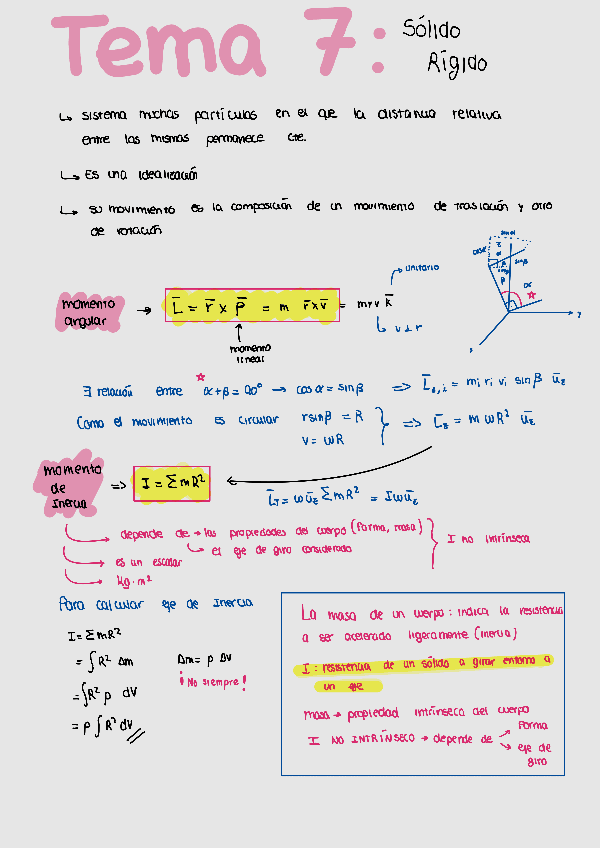 Tema 7: Sólido
Rígido
↳ sistema muchas partículas en el que la distancia relativa
entre las mismas permanece cte.
↳ Es una idealización
↳ su movimiento es la composición de un movimiento de traslación y otro
de rotación
momento
angular → L̄ = r̄ x P̄ = m r̄ x v̄ = m r v k̄
unitario
↳ v ⊥ r
momento
lineal
∃ relación entre α+β = 90° → cos α = sin β ⇒ L̄z,i = mi ri vi sin β ūz
Como el movimiento es circular r sin β = R
v = ωR
⇒ L̄z = m ωR² ūz
momento
de
Inercia ⇒ I = Σ m R²
L̄T = ω ūz Σ m R² = I ω ūz
depende de → las propiedades del cuerpo (forma, masa)
↳ el eje de giro considerado
es un escalar
kg · m²
I no intrínseca
Para calcular eje de Inercia
I = Σ m R²
= ∫ R² dm
= ∫ R² ρ dV
= ρ ∫ R² dV
dm = ρ dV
¡No siempre!
La masa de un cuerpo: indica la resistencia
a ser acelerado ligeramente (inercia)
I: resistencia de un sólido a girar entorno a
un eje
masa → propiedad intrínseca del cuerpo
I NO INTRÍNSECO → depende de → forma
→ eje de
giro